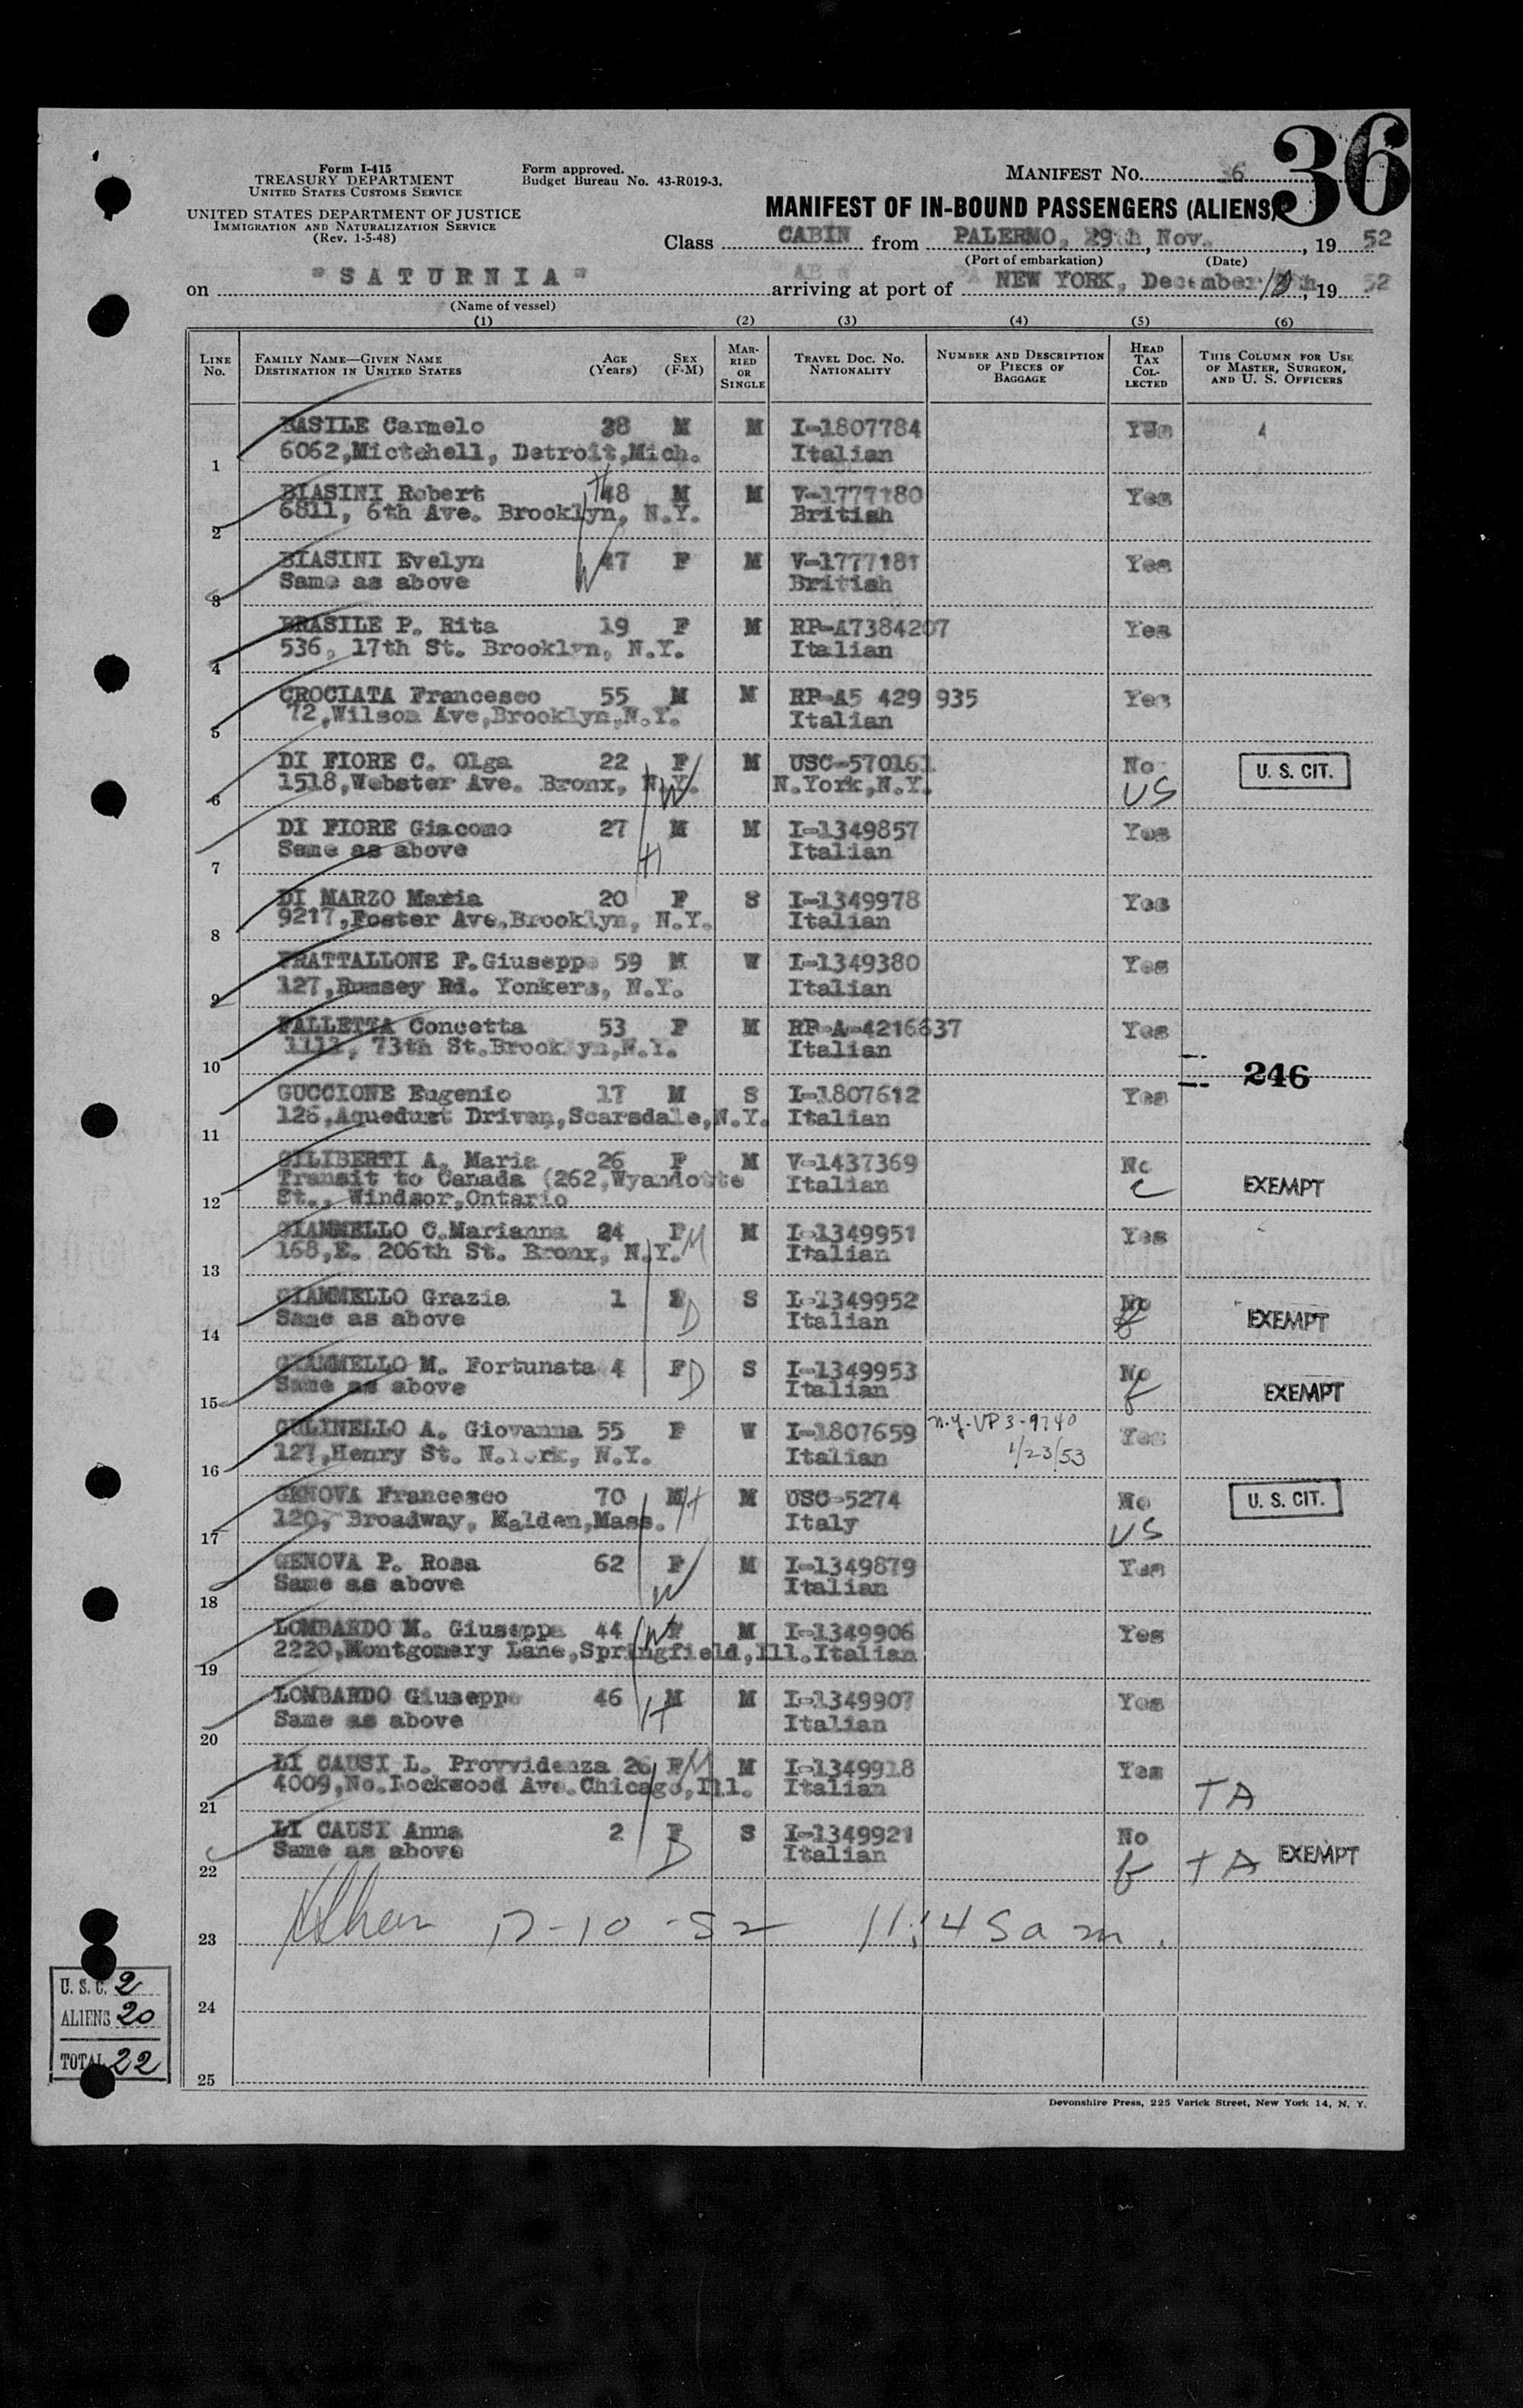 36
Form I-415
TREASURY DEPARTMENT
UNITED STATES CUSTOMS SERVICE
Form approved.
Budget Bureau No. 43-R019-3.
MANIFEST NO. 36
UNITED STATES DEPARTMENT OF JUSTICE
IMMIGRATION AND NATURALIZATION SERVICE
(Rev. 1-5-48)
MANIFEST OF IN-BOUND PASSENGERS (ALIENS)
Class CABIN from PALERMO, 29th, Nov. , 19 52
(Port of embarkation) (Date)
on "SATURNIA" arriving at port of NEW YORK, December 10 th, 19 52
(Name of vessel)
(1) (2) (3) (4) (5) (6)
LINE No. FAMILY NAME—GIVEN NAME DESTINATION IN UNITED STATES AGE (Years) SEX (F-M) MARRIED OR SINGLE TRAVEL DOC. NO. NATIONALITY NUMBER AND DESCRIPTION OF PIECES OF BAGGAGE HEAD TAX COLLECTED THIS COLUMN FOR USE OF MASTER, SURGEON, AND U. S. OFFICERS
BASILE Carmelo 38 M M I-1807784 Yes
1 6062,Mictchell, Detroit,Mich. Italian
BIASINI Robert 48 H M M V-1777180 Yes
2 6811, 6th Ave. Brooklyn, N.Y. British
BIASINI Evelyn W 47 F M V-1777181 Yes
3 Same as above British
BRASILE P. Rita 19 F M RP-A7384207 Yes
4 536, 17th St. Brooklyn, N.Y. Italian
CROCIATA Francesco 55 M M RP-A5 429 935 Yes
5 72,Wilson Ave,Brooklyn,N.Y. Italian
DI FIORE C. Olga 22 F W M USC-570161 No U. S. CIT.
6 1518,Webster Ave. Bronx, N.Y. N.York,N.Y. US
DI FIORE Giacomo 27 M M I-1349857 Yes
7 Same as above H Italian
DI MARZO Maria 20 F S I-1349978 Yes
8 9217,Foster Ave,Brooklyn, N.Y. Italian
FRATTALLONE F.Giuseppe 59 M W I-1349380 Yes
9 127,Rumsey Rd. Yonkers, N.Y. Italian
FALLETTA Concetta 53 F M RP-A-4216637 Yes
10 1111, 73th St.Brooklyn,N.Y. Italian
246
GUCCIONE Eugenio 17 M S I-1807612 Yes
11 126,Aquedust Driven,Scarsdale,N.Y. Italian
GILIBERTI A. Maria 26 F M V-1437369 No
Transit to Canada (262,Wyandotte Italian C EXEMPT
12 St., Windsor,Ontario
GIAMMELLO C.Marianna 24 F M M I-1349951 Yes
13 168,E. 206th St. Bronx, N.Y. Italian
GIAMMELLO Grazia 1 F S I-1349952 No
14 Same as above D Italian f EXEMPT
GIAMMELLO M. Fortunata 4 F D S I-1349953 No
15 Same as above Italian f EXEMPT
GULINELLO A. Giovanna 55 F W I-1807659 N.Y.-VP 3-9740 Yes
16 127,Henry St. N.York, N.Y. Italian 1/23/53
GENOVA Francesco 70 M H M USC-5274 No U. S. CIT.
17 120, Broadway, Malden,Mass. Italy US
GENOVA P. Rosa 62 F M I-1349879 Yes
18 Same as above W Italian
LOMBARDO M. Giuseppa 44 W F M I-1349906 Yes
19 2220,Montgomery Lane,Springfield,Ill. Italian
LOMBARDO Giuseppe 46 M M I-1349907 Yes
20 Same as above H Italian
LI CAUSI L. Provvidenza 26 F M M I-1349918 Yes
21 4009,No.Lockwood Ave.Chicago,Ill. Italian TA
LI CAUSI Anna 2 F S I-1349921 No
22 Same as above D Italian f TA EXEMPT
23 12-10-52 11:45 am.
24
25
U. S. C. 2
ALIENS 20
TOTAL 22
Devonshire Press, 225 Varick Street, New York 14, N. Y.